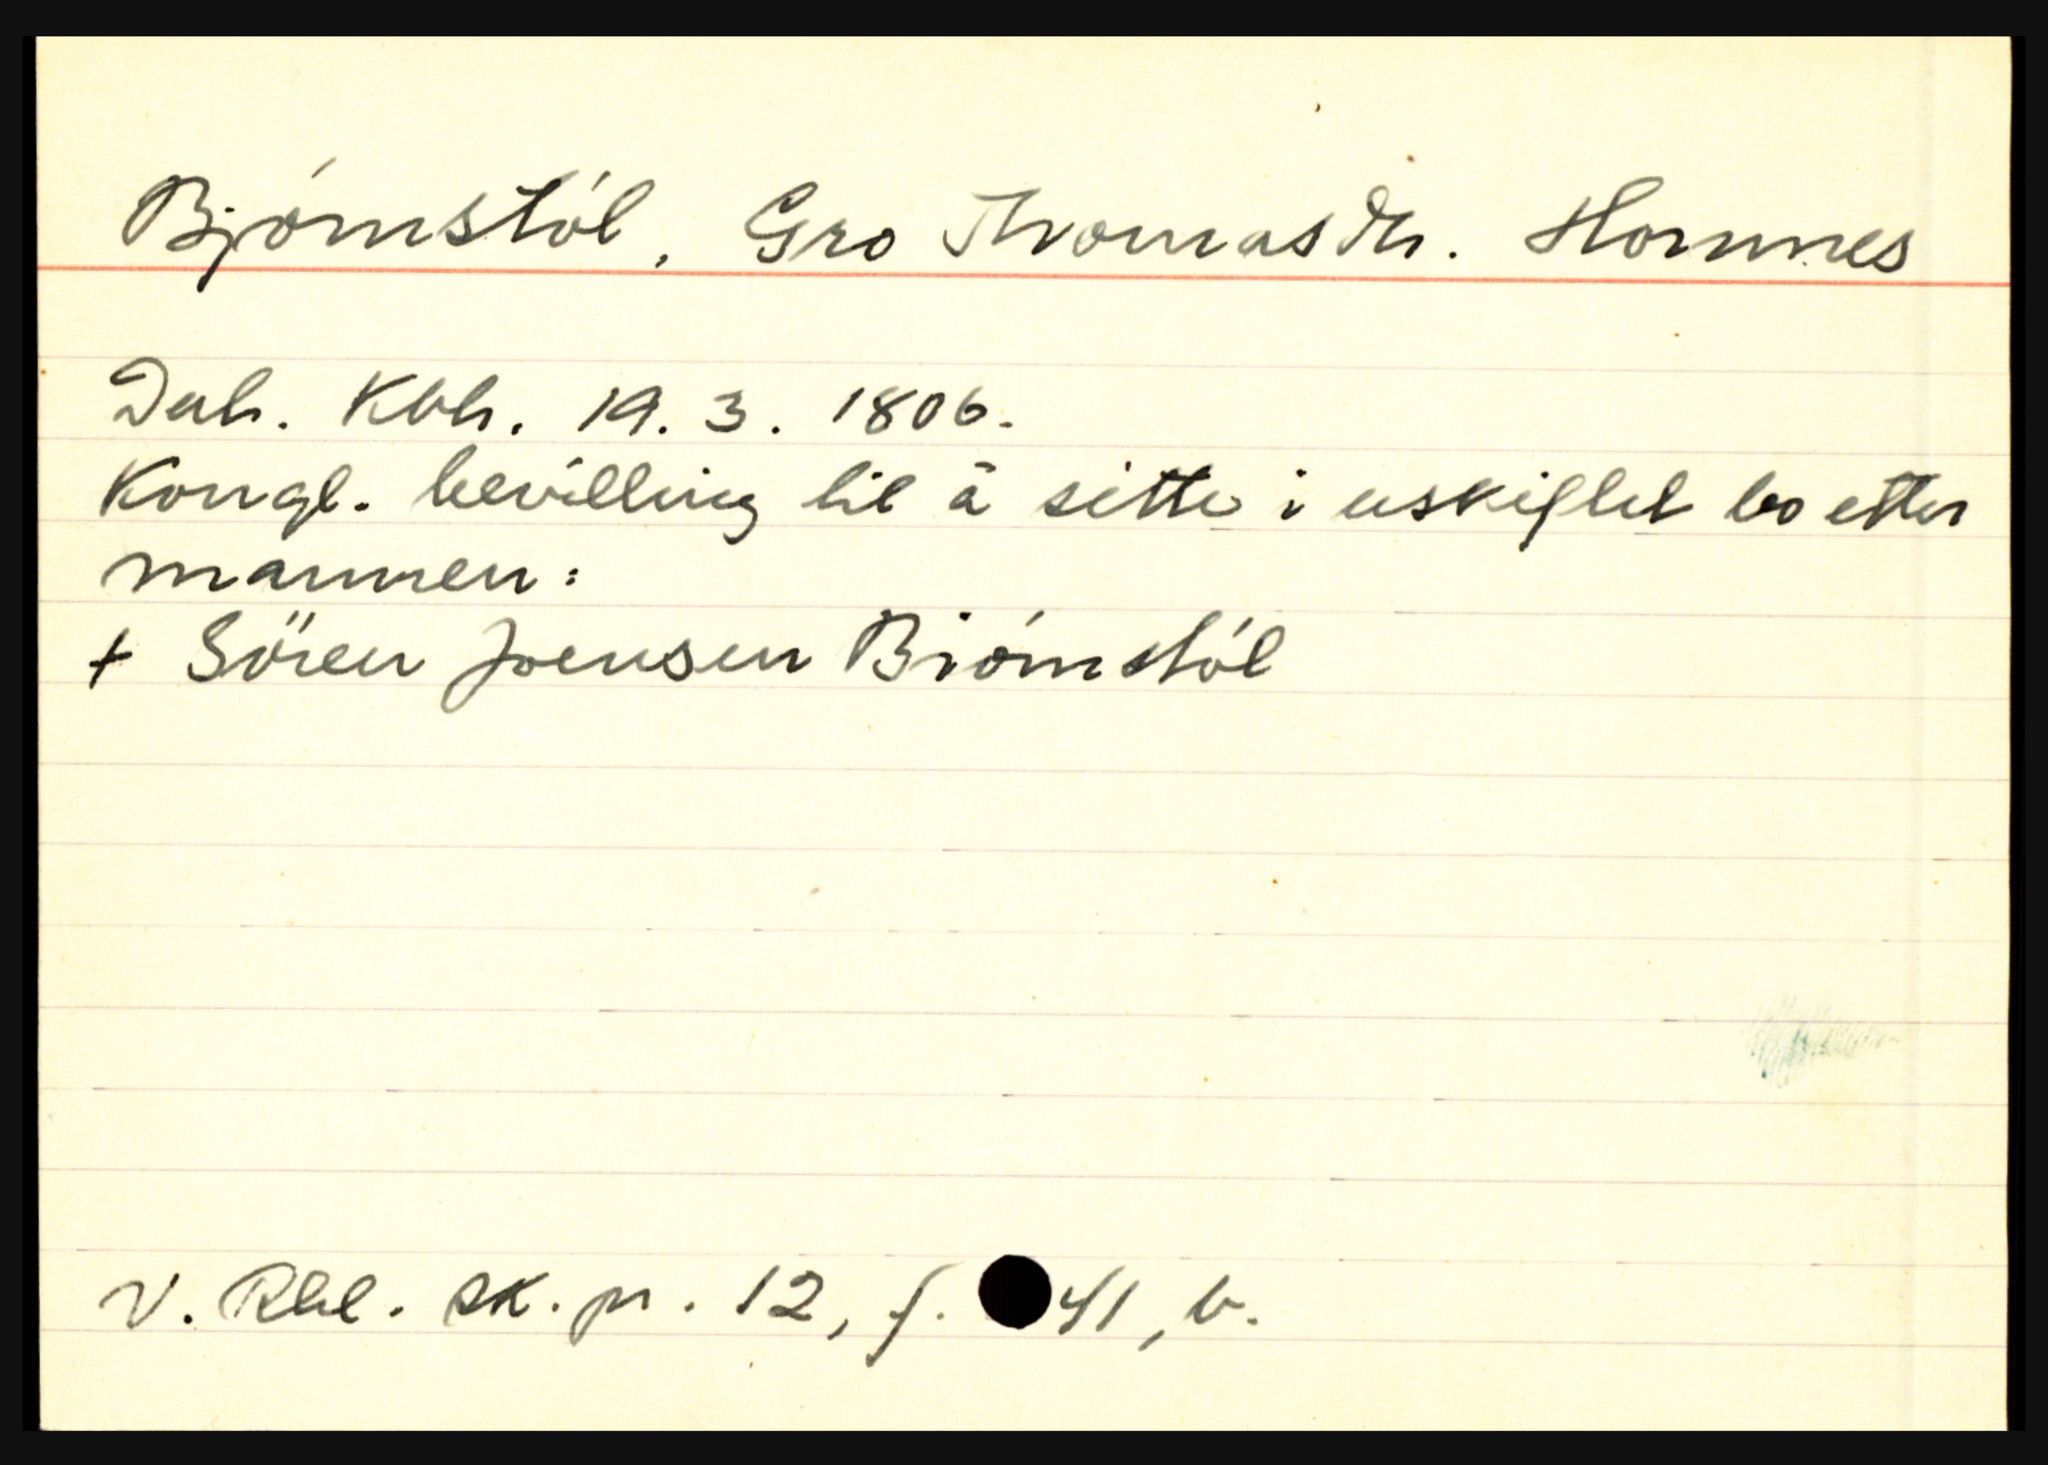 Bjørnstöl, Gro Thomasdtr. Hornnes
Dat. Kbh. 19. 3. 1806.
Kongl. bevilling til å sitte i uskiftet bo etter
mannen:
+ Sören Joensen Biørnstöl
V. Rbl. sk. pr. 12, f. 41, b.